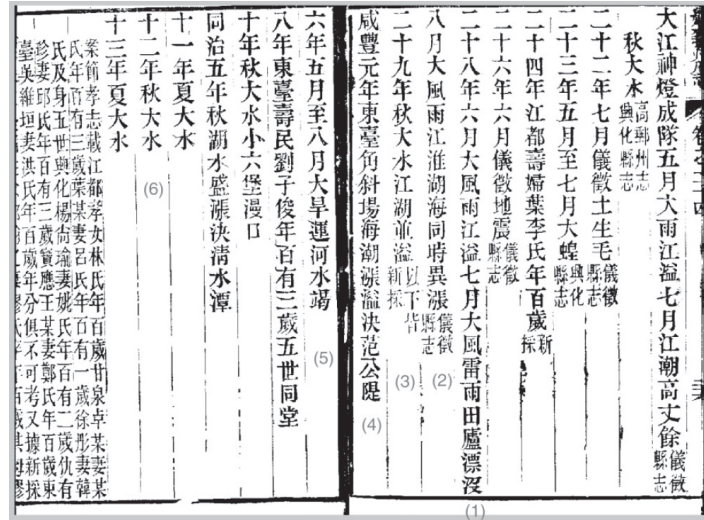 大江神燈成隊五月大雨江溢七月江潮高丈餘儀徵縣志
秋大水高郵州志興化縣志
二十二年七月儀徵土生毛儀徵縣志
二十三年五月至七月大蝗興化縣志
二十四年江都壽婦葉李氏年百歲新採
二十六年六月儀徵地震儀徵縣志
二十八年六月大風雨江溢七月大風雷雨田廬漂沒
(1)
八月大風雨江淮湖海同時異漲儀徵縣志
(2)
二十九年秋大水江湖並溢以下皆新採
(3)
咸豐元年東臺角斜場海潮漲溢決范公隄
(4)
六年五月至八月大旱運河水竭
(5)
八年東臺壽民劉子俊年百有三歲五世同堂
十年秋大水小六堡漫口
同治五年秋湖水盛漲決清水潭
十一年夏大水
十二年秋大水
(6)
十三年夏大水
業節孝志載江都孝女林氏年百歲甘泉卓某妻某
氏年百有三歲葉某妻呂氏年百有一歲徐彤妻韓
氏及身五世興化楊尚瑜妻姚氏年百有二歲仇有
珍妻邱氏年百有三歲寶應王某妻鄭氏年百歲東
臺吳維垣妻洪氏年百歲年分俱不可考又據新採